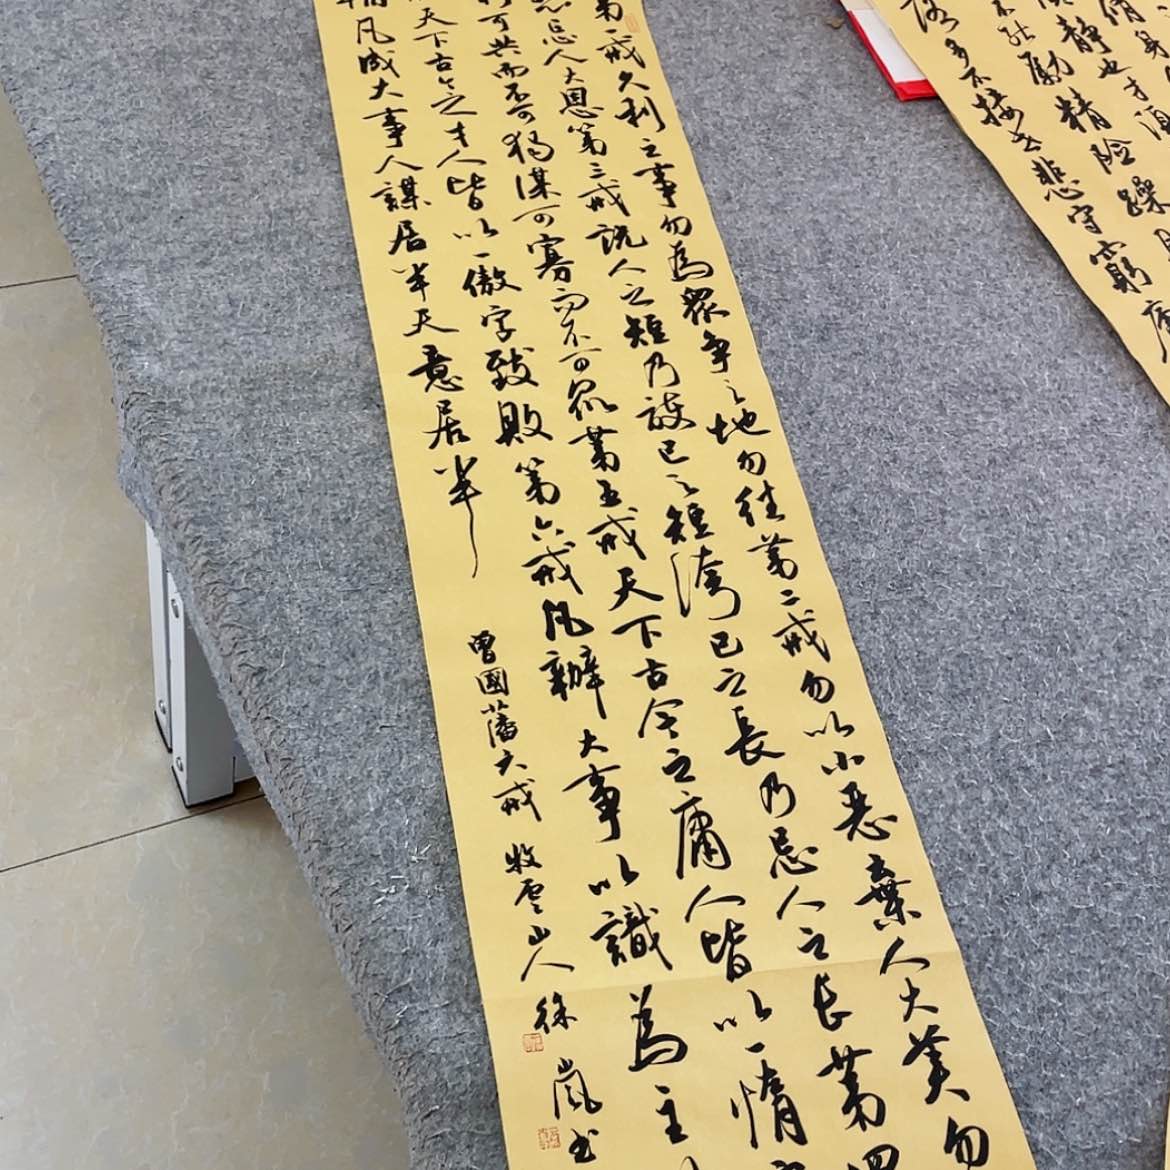 修身
静也才須
不能勵精險躁
落多不接世悲守窮廬
第一戒久利之事勿為眾爭之地勿往第二戒勿以小惡棄人大美勿
怨忘人大恩第三戒説人之短乃護己之短誇己之長乃忌人之長第四
可共而不可獨謀可寡而不可眾第五戒天下古今之庸人皆以一惰
天下古今之才人皆以一傲字致敗第六戒凡辦大事以識為主
輔凡成大事人謀居半天意居半
曾國藩六戒 牧雲山人徐嵐书